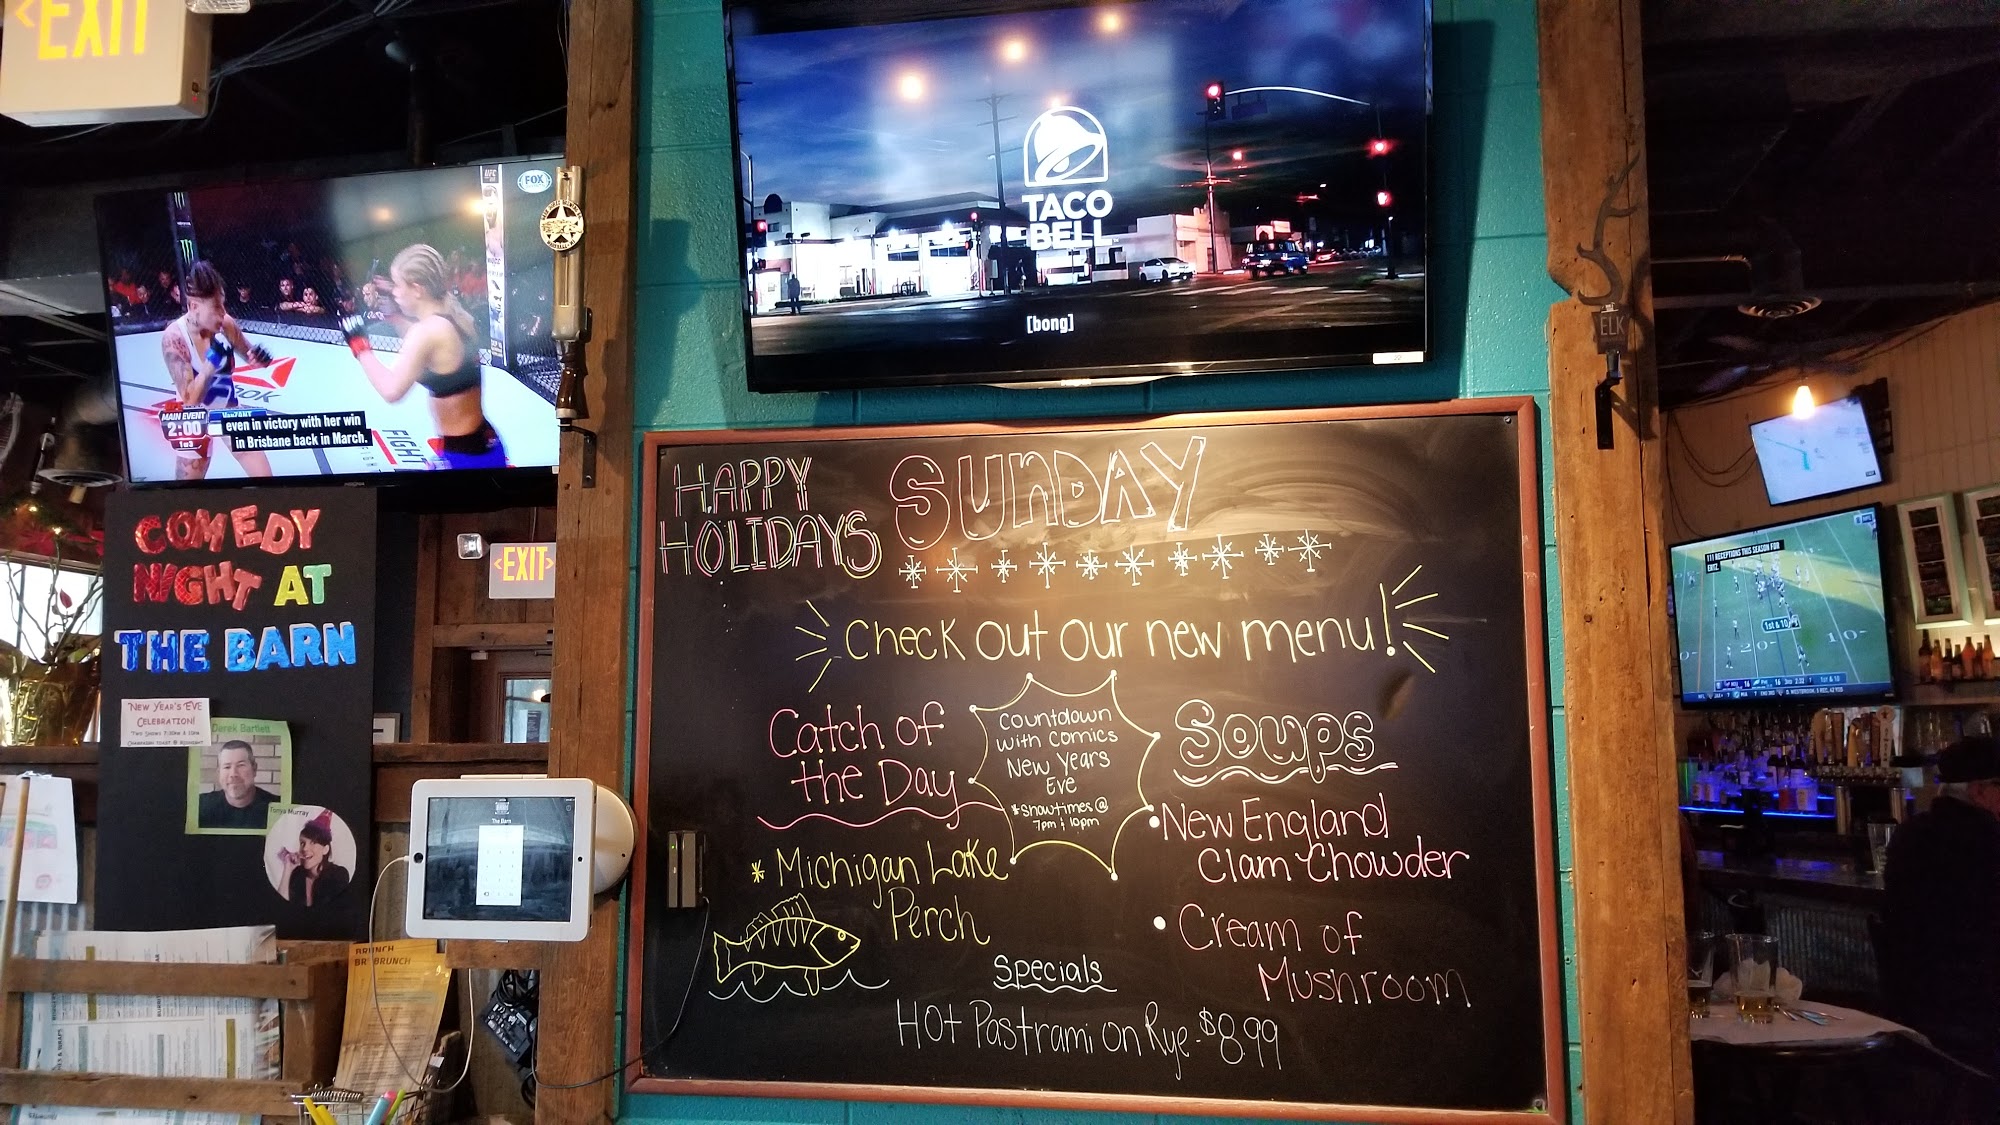 EXIT
FOX
UFC
MAIN EVENT
2:00
even in victory with her win
in Brisbane back in March.
FIGHT
TACO
BELL
[bong]
ELK
COMEDY
NIGHT AT
THE BARN
NEW YEAR'S EVE
CELEBRATION!
TWO SHOWS 7:30PM & 10PM
CHAMPAGNE TOAST @ MIDNIGHT
Derek Bartlett
Tonya Murray
<EXIT>
The Barn
BRUNCH
BRUNCH
HAPPY
HOLIDAYS
SUNDAY
Check out our new menu!
Catch of
the Day
* Michigan Lake
Perch
Countdown
with comics
New Years
Eve
*Showtimes @
7pm & 10pm
Soups
• New England
Clam Chowder
• Cream of
Mushroom
Specials
Hot Pastrami on Rye - $8.99
111 RECEPTIONS THIS SEASON FOR
ERTZ.
1st & 10